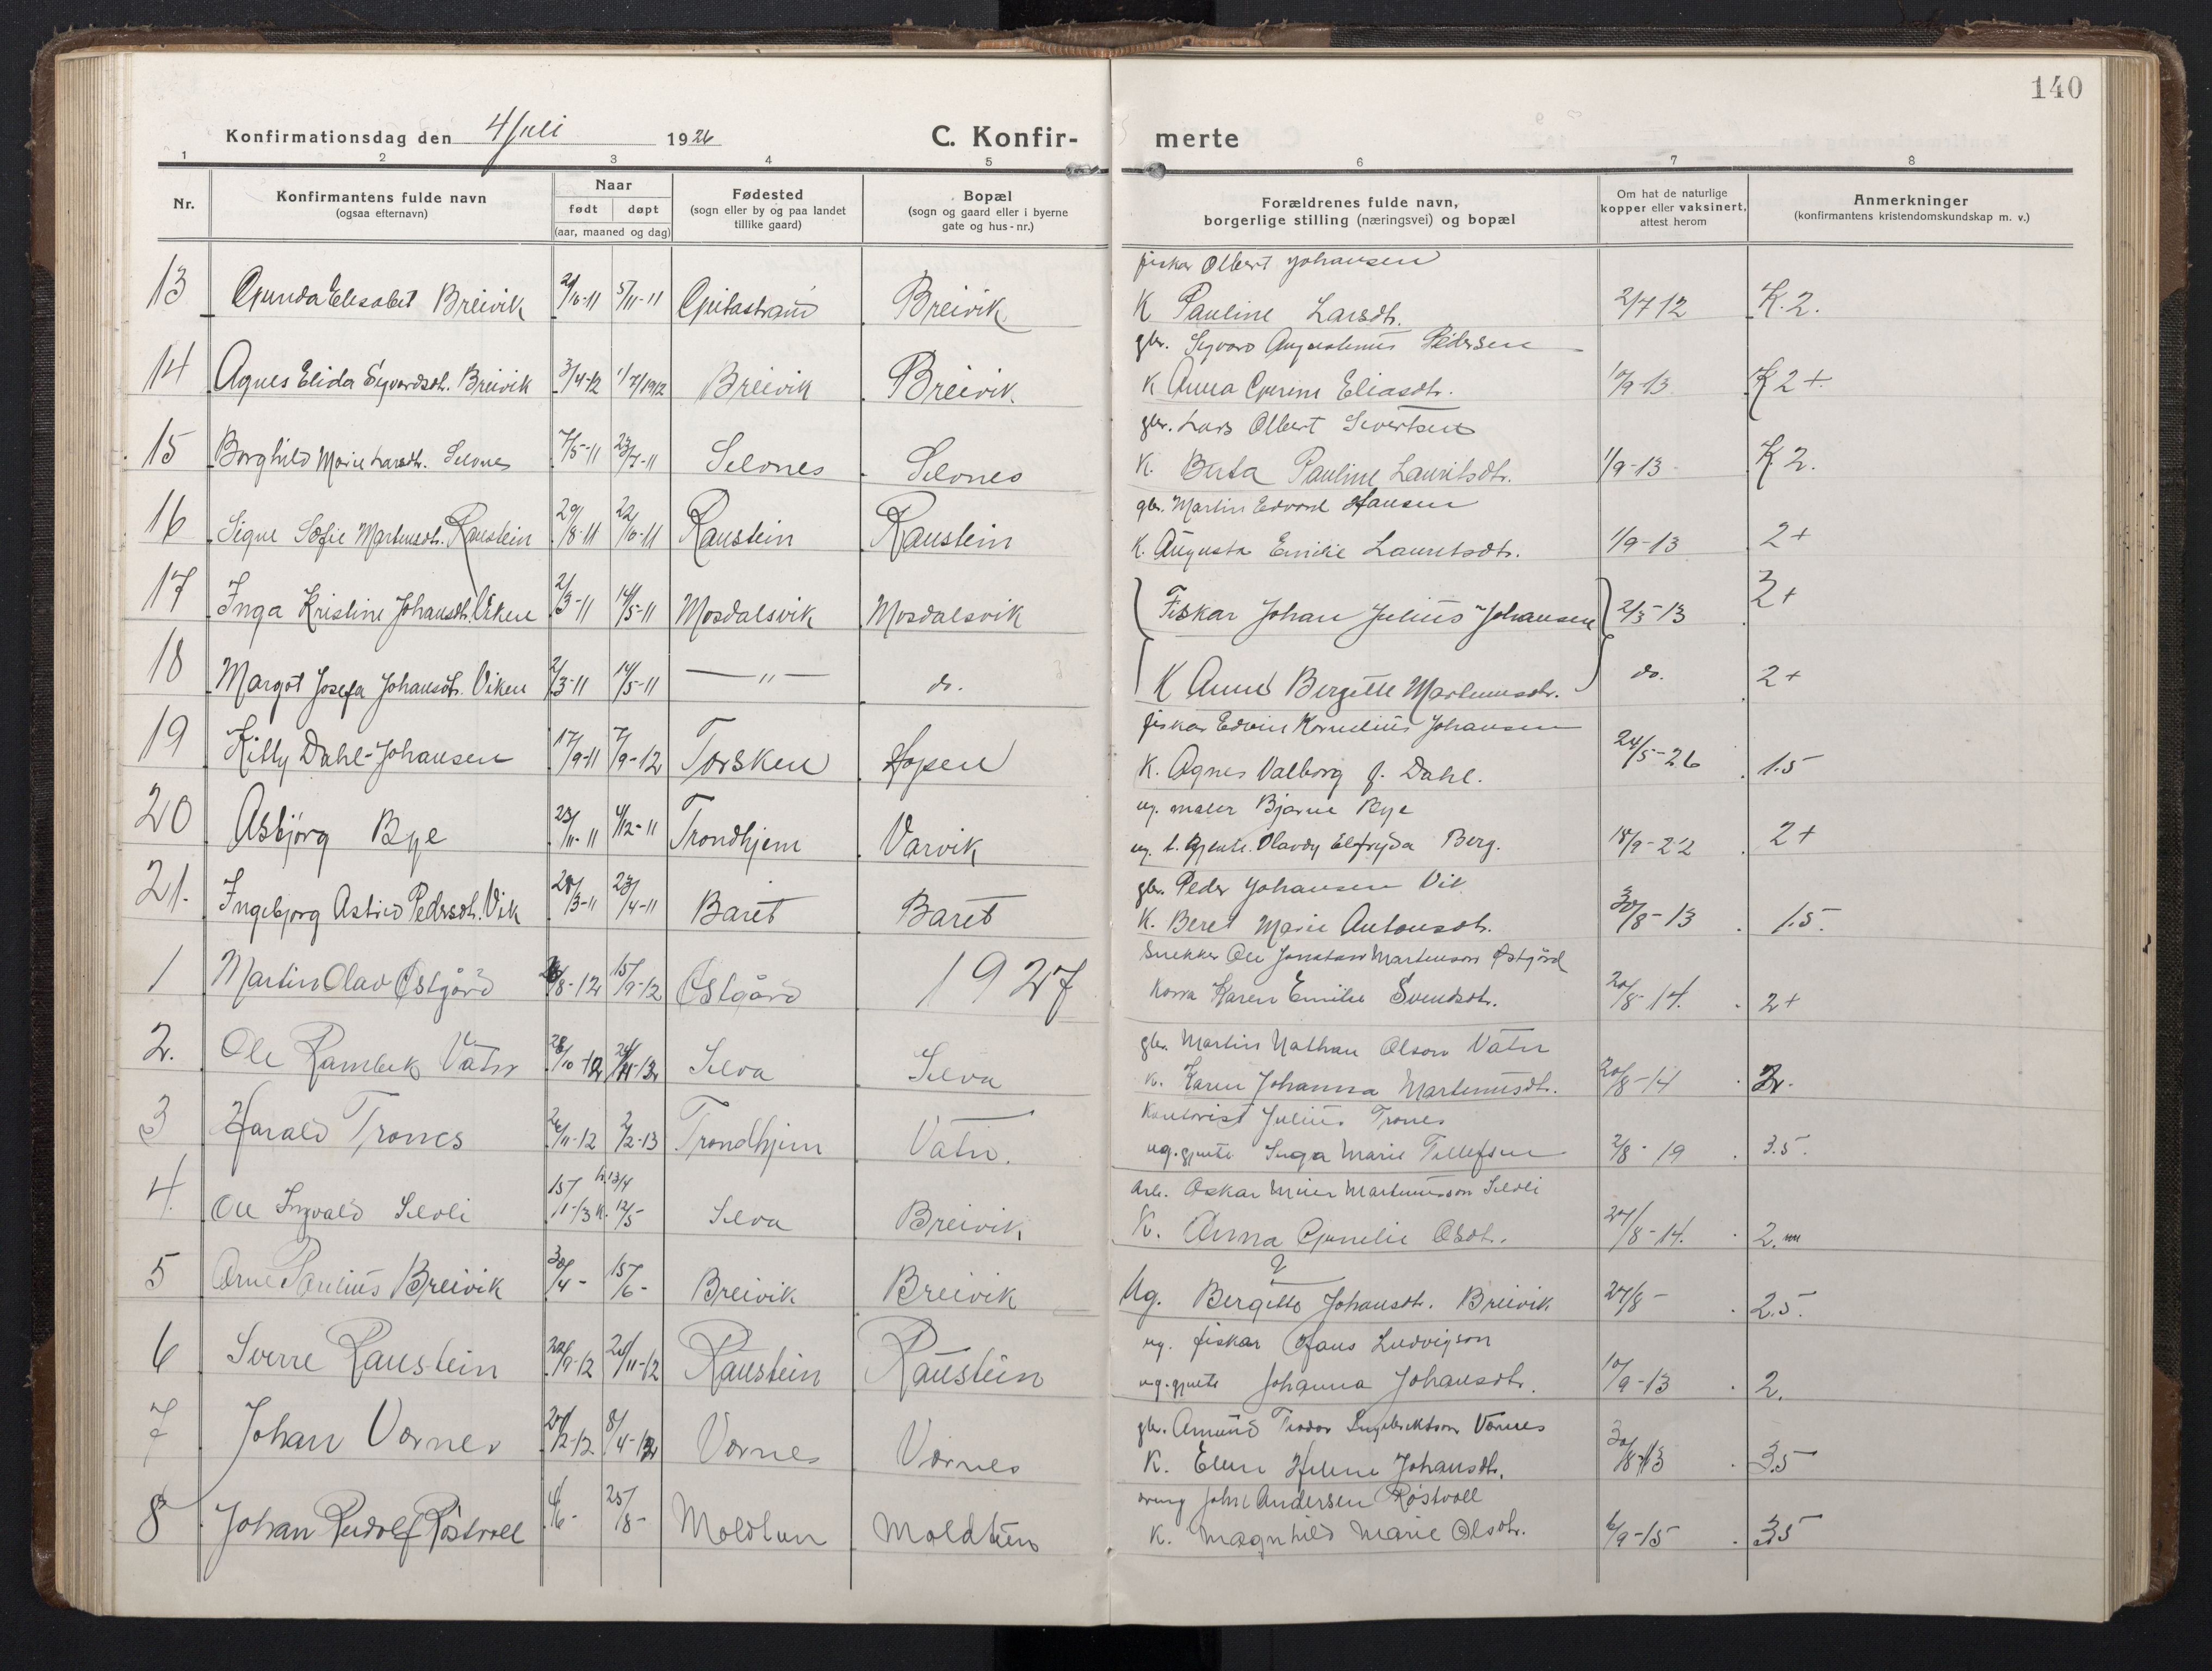 140
Konfirmationsdag den 4 Juli 1926 C. Konfir- merte
1 2 3 4 5 6 7 8
Nr. Konfirmantens fulde navn (ogsaa efternavn) Naar født døpt (aar, maaned og dag) Fødested (sogn eller by og paa landet tillike gaard) Bopæl (sogn og gaard eller i byerne gate og hus-nr.) Forældrenes fulde navn, borgerlige stilling (næringsvei) og bopæl Om hat de naturlige kopper eller vaksinert, attest herom Anmerkninger (konfirmantens kristendomskundskap m. v.)
fisker Olbert Johansen
13 Gunda Elisabet Breivik 5/11-11 Breivik K Pauline Larsdtr. 2/7 12 K. 2.
gbr. Sigvard Augustinus Pedersen
14 Agnes Elida Sigvardsdtr. Breivik 3/4-12 1/7 1912 Breivik Breivik K Anna Eliasdtr. 10/9-13 K 2+.
gbr. Lars Olbert Sivertsen
15 Borghild Marie Larsdtr. Selvnes 7/5-11 23/7-11 Selvnes Selvnes K. Berta Pauline Lauritsdtr. 1/9-13 K 2.
gbr. Martin Edvard Hansen
16 Signe Sofie Martinsdtr. Raustein 29/8-11 22/10-11 Raustein Raustein K. Augusta Emilie Lauritsdtr. 1/9-13 2+
17 Inga Kristine Johansdtr. Viken 2/3-11 14/5-11 Mosdalsvik Mosdalsvik Fiskar Johan Julius Johansen 2/5-13 2+
18 Margot Josefa Johansdtr. Viken 2/3-11 14/5-11 — " — do. K Anna Bergitte Martinusdtr. do. 2+
fiskar Edvin Kornelius Johansen
19 Killy Dahl-Johansen 17/9-11 7/9-12 Torsken Hopen K. Agnes Valborg f. Dahl. 24/5-26 1.5
ug. maler Bjarne Bye
20 Asbjørg Bye 23/11-11 4/12-11 Trondhjem Varvik ug. Elfryda Berg. 18/9-22 2+
gbr. Peder Johansen Vik
21. Ingebjorg Astrid Pedersdtr. Vik 28/3-11 23/4-11 Baret Baret K. Beret Marie Antonsdtr. 30/8-13 1.5.
Snekker Ole Jonatan Martinson Østgård
1 Martin Olav Østgård 15/9-12 Østgård 1927 Kona Karen Emilie Svendsdtr. 20/8-14. 2+
gbr. Martin Nathan Olson Vatn
2. Ole Rambek Vatn 28/10-12 Selva Selva K. Karen Johanna Martinusdtr. 20/8-14 2.
Kontorist Julius Trones
3 Harald Trones 26/11-12 2/2-13 Trondhjem Vatn. ug. gjente Inga Marie Tellefsen 2/8-19 3.5.
arb. Oskar Meier Martinusson Selvli
4. Ole Ingvald Selvli 15/1-13 12/5 Selva Breivik K. Anna Olsdtr. 27/8-14. 2.
?
5 Arne Paulius Breivik 30/4- 15/6- Breivik Breivik Ug. Bergitte Johansdtr. Breivik 27/8- 2.5.
ug. fiskar Hans Ludvigson
6 Sverre Raustein 22/9-12 24/11-12 Raustein Raustein ug. gjente Johanna Johansdtr. 10/9-13 2.
gbr. Amund Teodor Ingebriktson Vornes
7 Johan Vornes 27/12-12 8/4-13 Vornes Vornes K. Elen Helene Johansdtr. 30/8-13 3.5
dreng John Andersen Røstvoll
8 Johan Rudolf Røstvoll 4/6- 25/8- Moldtun Moldtun K. Magnhild Marie Olsdtr. 6/9-15 3.5